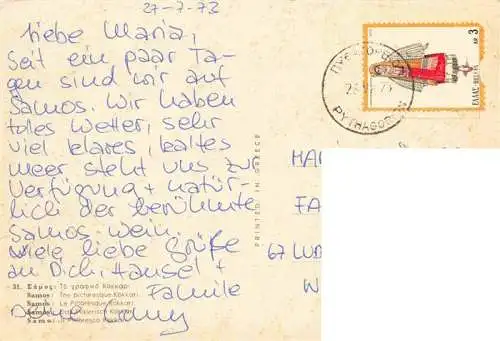 27-7-73
liebe Maria,
seit ein paar Ta-
gen sind wir auf
Samos. Wir haben
tolles Wetter, sehr
viel klares, kaltes
Meer steht uns zur
Verfügung + natür-
lich der berühmte
Samos Wein.
Viele liebe Grüße
an Dich, Hansel +
Familie
Deine
31. Σάμος: Τὸ γραφικὸ Κοκκάρι
Samos: The picturesque Kokkari
Samos: Le Pittoresque Kokkari
Samos: Das Malerisch Kokkari
Samos: Il Pittoresco Kokkari
PRINTED IN GREECE
ΠΥΘΑΓΟΡΕΙΟΝ
PYTHAGORION
ΕΛΛΑΣ-HELLAS
ΔΡ 3
MAR
FA
67 LUD
W